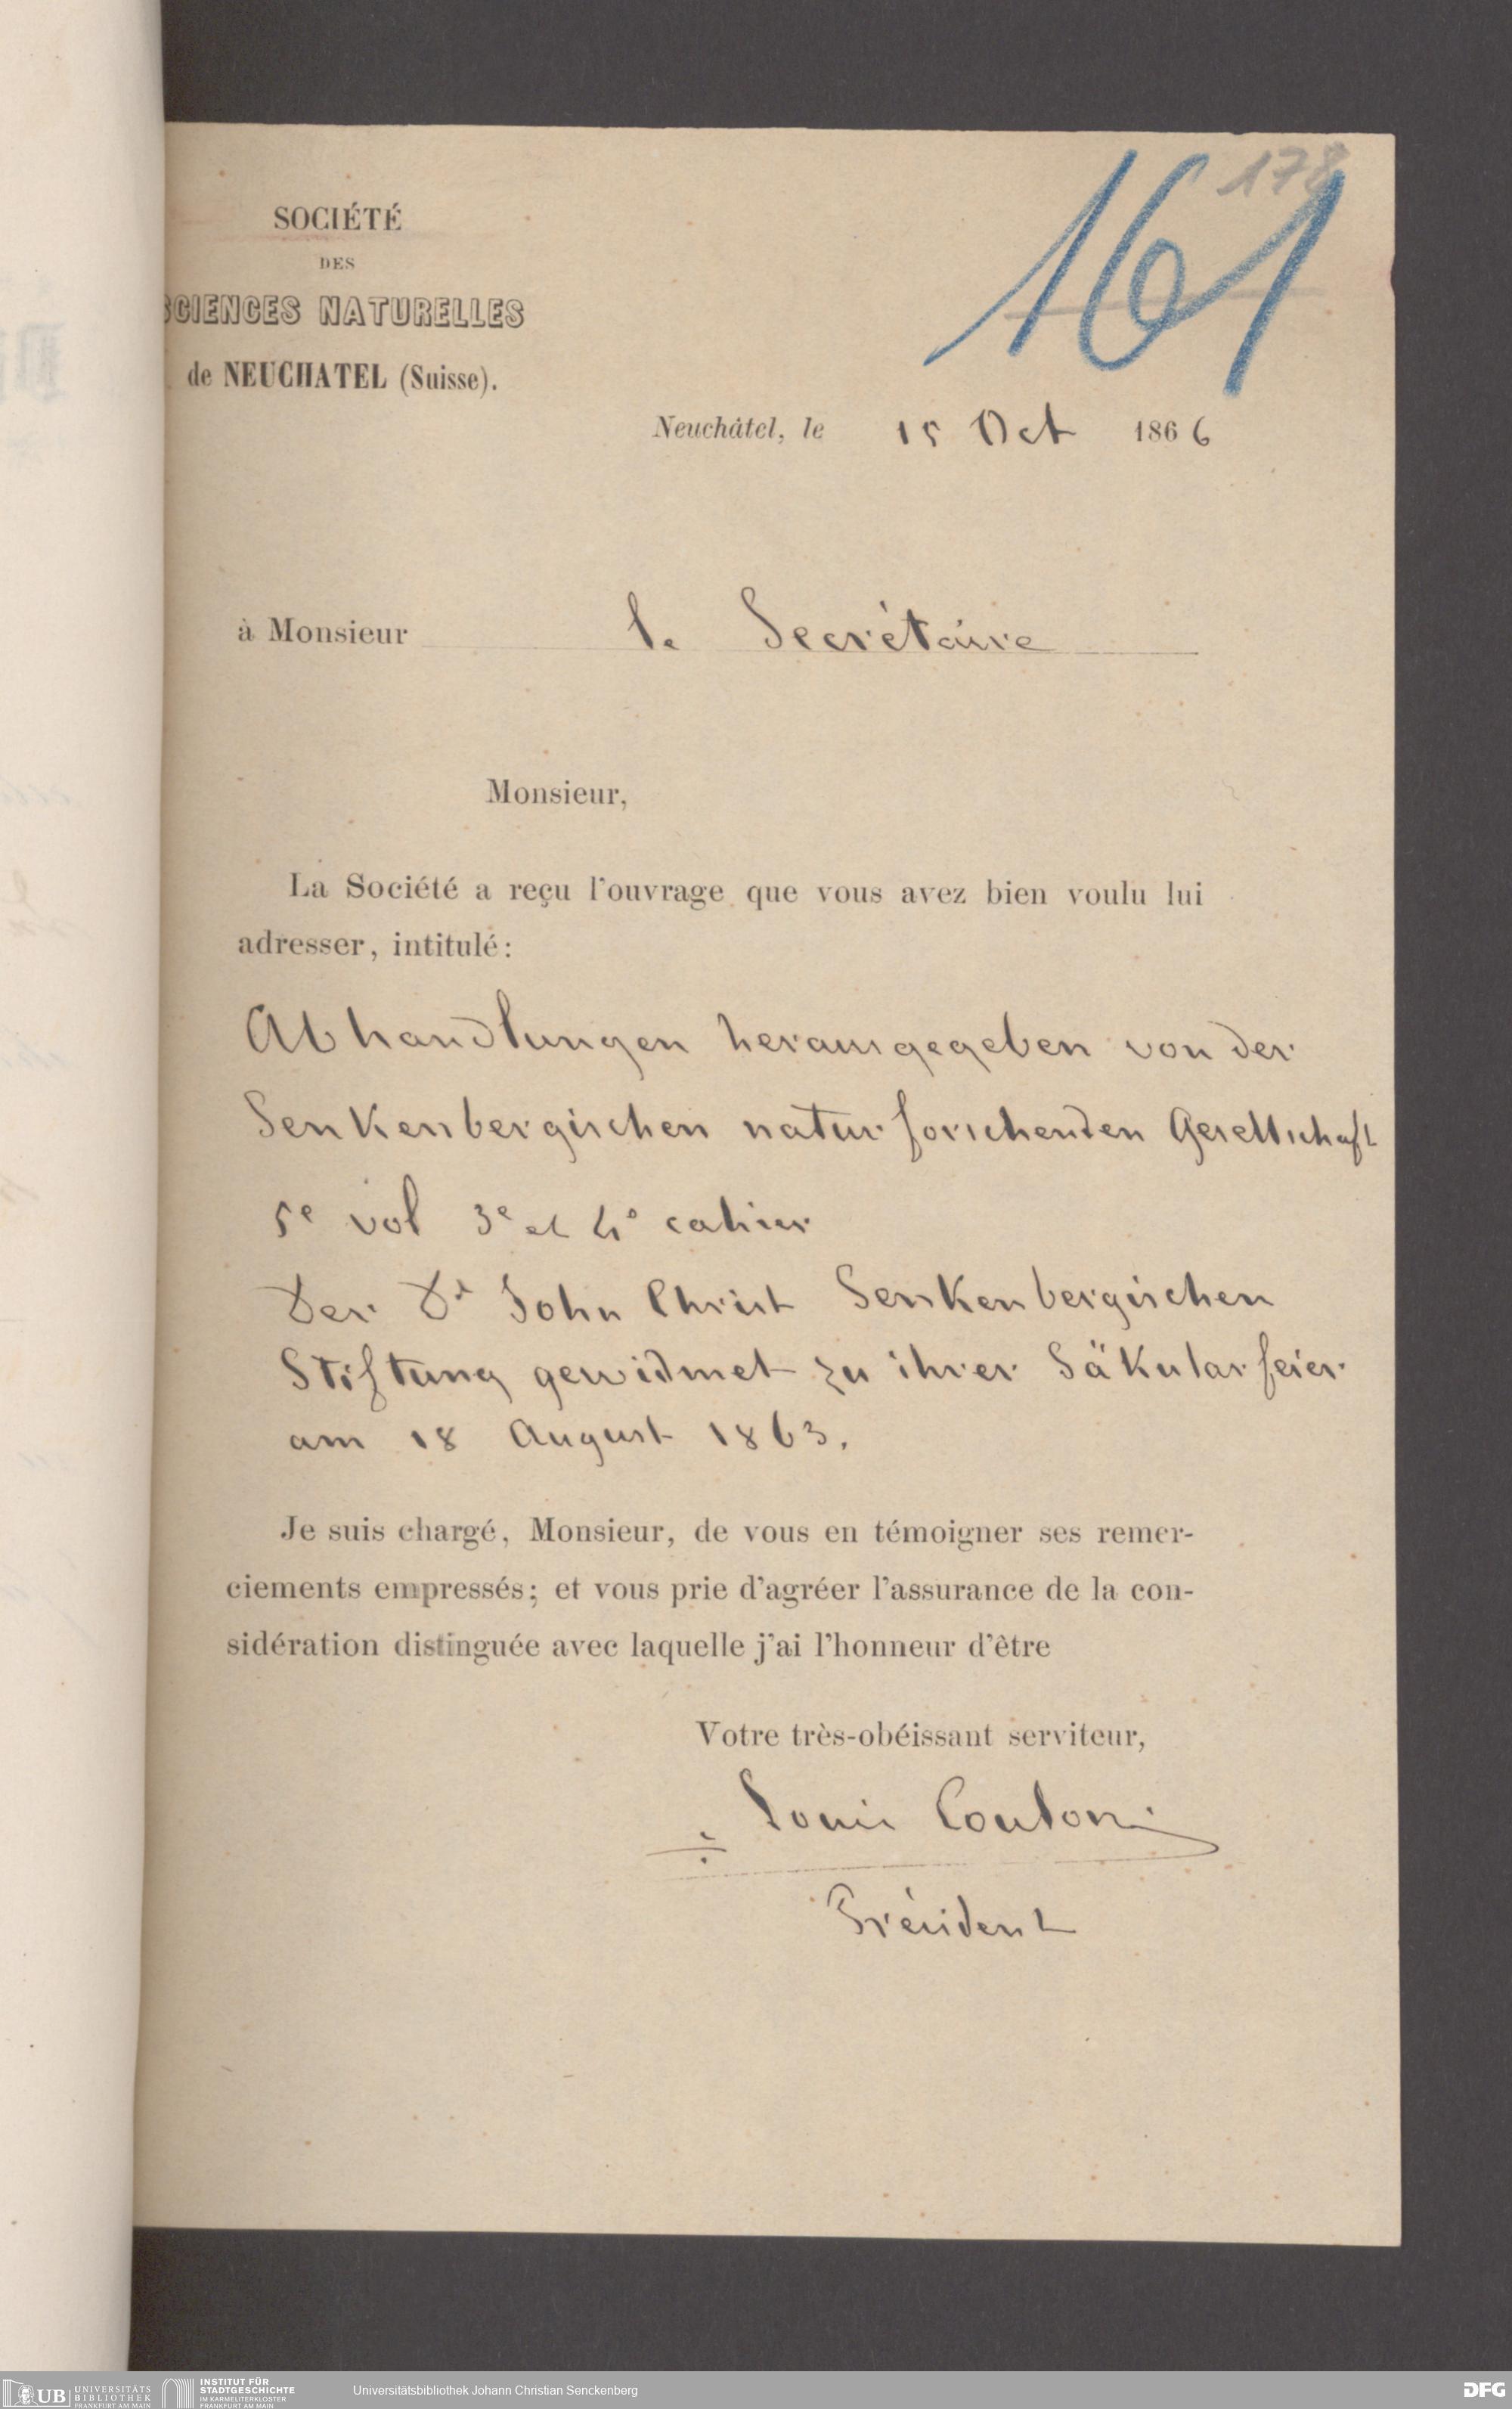 178
161
SOCIÉTÉ
DES
SCIENCES NATURELLES
de NEUCHATEL (Suisse).
Neuchâtel, le 15 Oct 1866
à Monsieur le Secrétaire
Monsieur,
La Société a reçu l'ouvrage que vous avez bien voulu lui
adresser, intitulé:
Abhandlungen herausgegeben von der
Senkenbergischen naturforschenden Gesellschaft
5e vol 3e et 4e cahier
Der Dr John Christ Senkenbergischen
Stiftung gewidmet zu ihrer Säkularfeier
am 18 August 1863.
Je suis chargé, Monsieur, de vous en témoigner ses remer-
ciements empressés; et vous prie d'agréer l'assurance de la con-
sidération distinguée avec laquelle j'ai l'honneur d'être
Votre très-obéissant serviteur,
Louis Coulon
Président
UB UNIVERSITÄTS
BIBLIOTHEK
FRANKFURT AM MAIN
INSTITUT FÜR
STADTGESCHICHTE
IM KARMELITERKLOSTER
FRANKFURT AM MAIN
Universitätsbibliothek Johann Christian Senckenberg
DFG